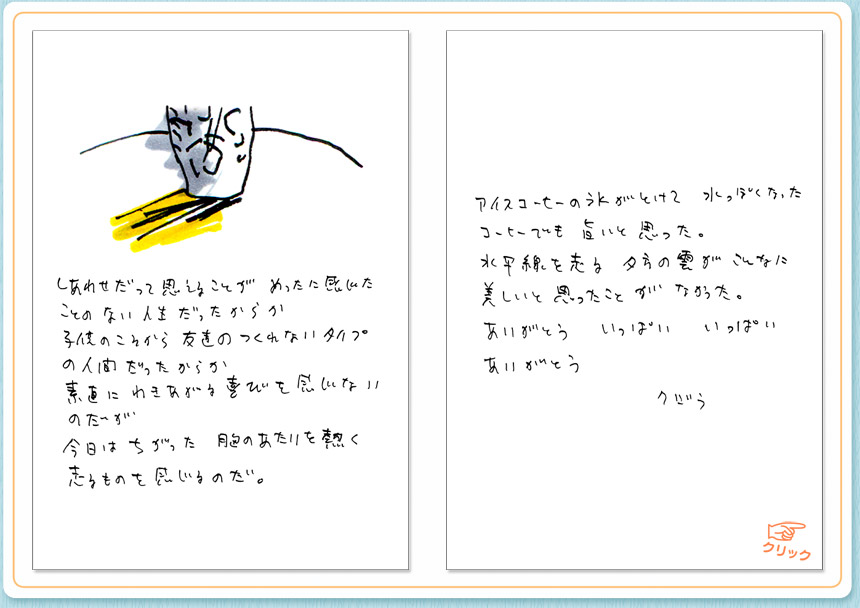 しあわせだって思えることが めったに感じた
ことのない人生だったからか
子供のころから友達のつくれないタイプ
の人間だったからか
素直にわきあがる喜びを感じない
のだが
今日はちがった 胸のあたりを熱く
走るものを感じるのだ。
アイスコーヒーの氷がとけて 水っぽくなった
コーヒーでも旨いと思った。
水平線を走る 夕方の雲がこんなに
美しいと思ったことがなかった。
ありがとう いっぱい いっぱい
ありがとう
クリック